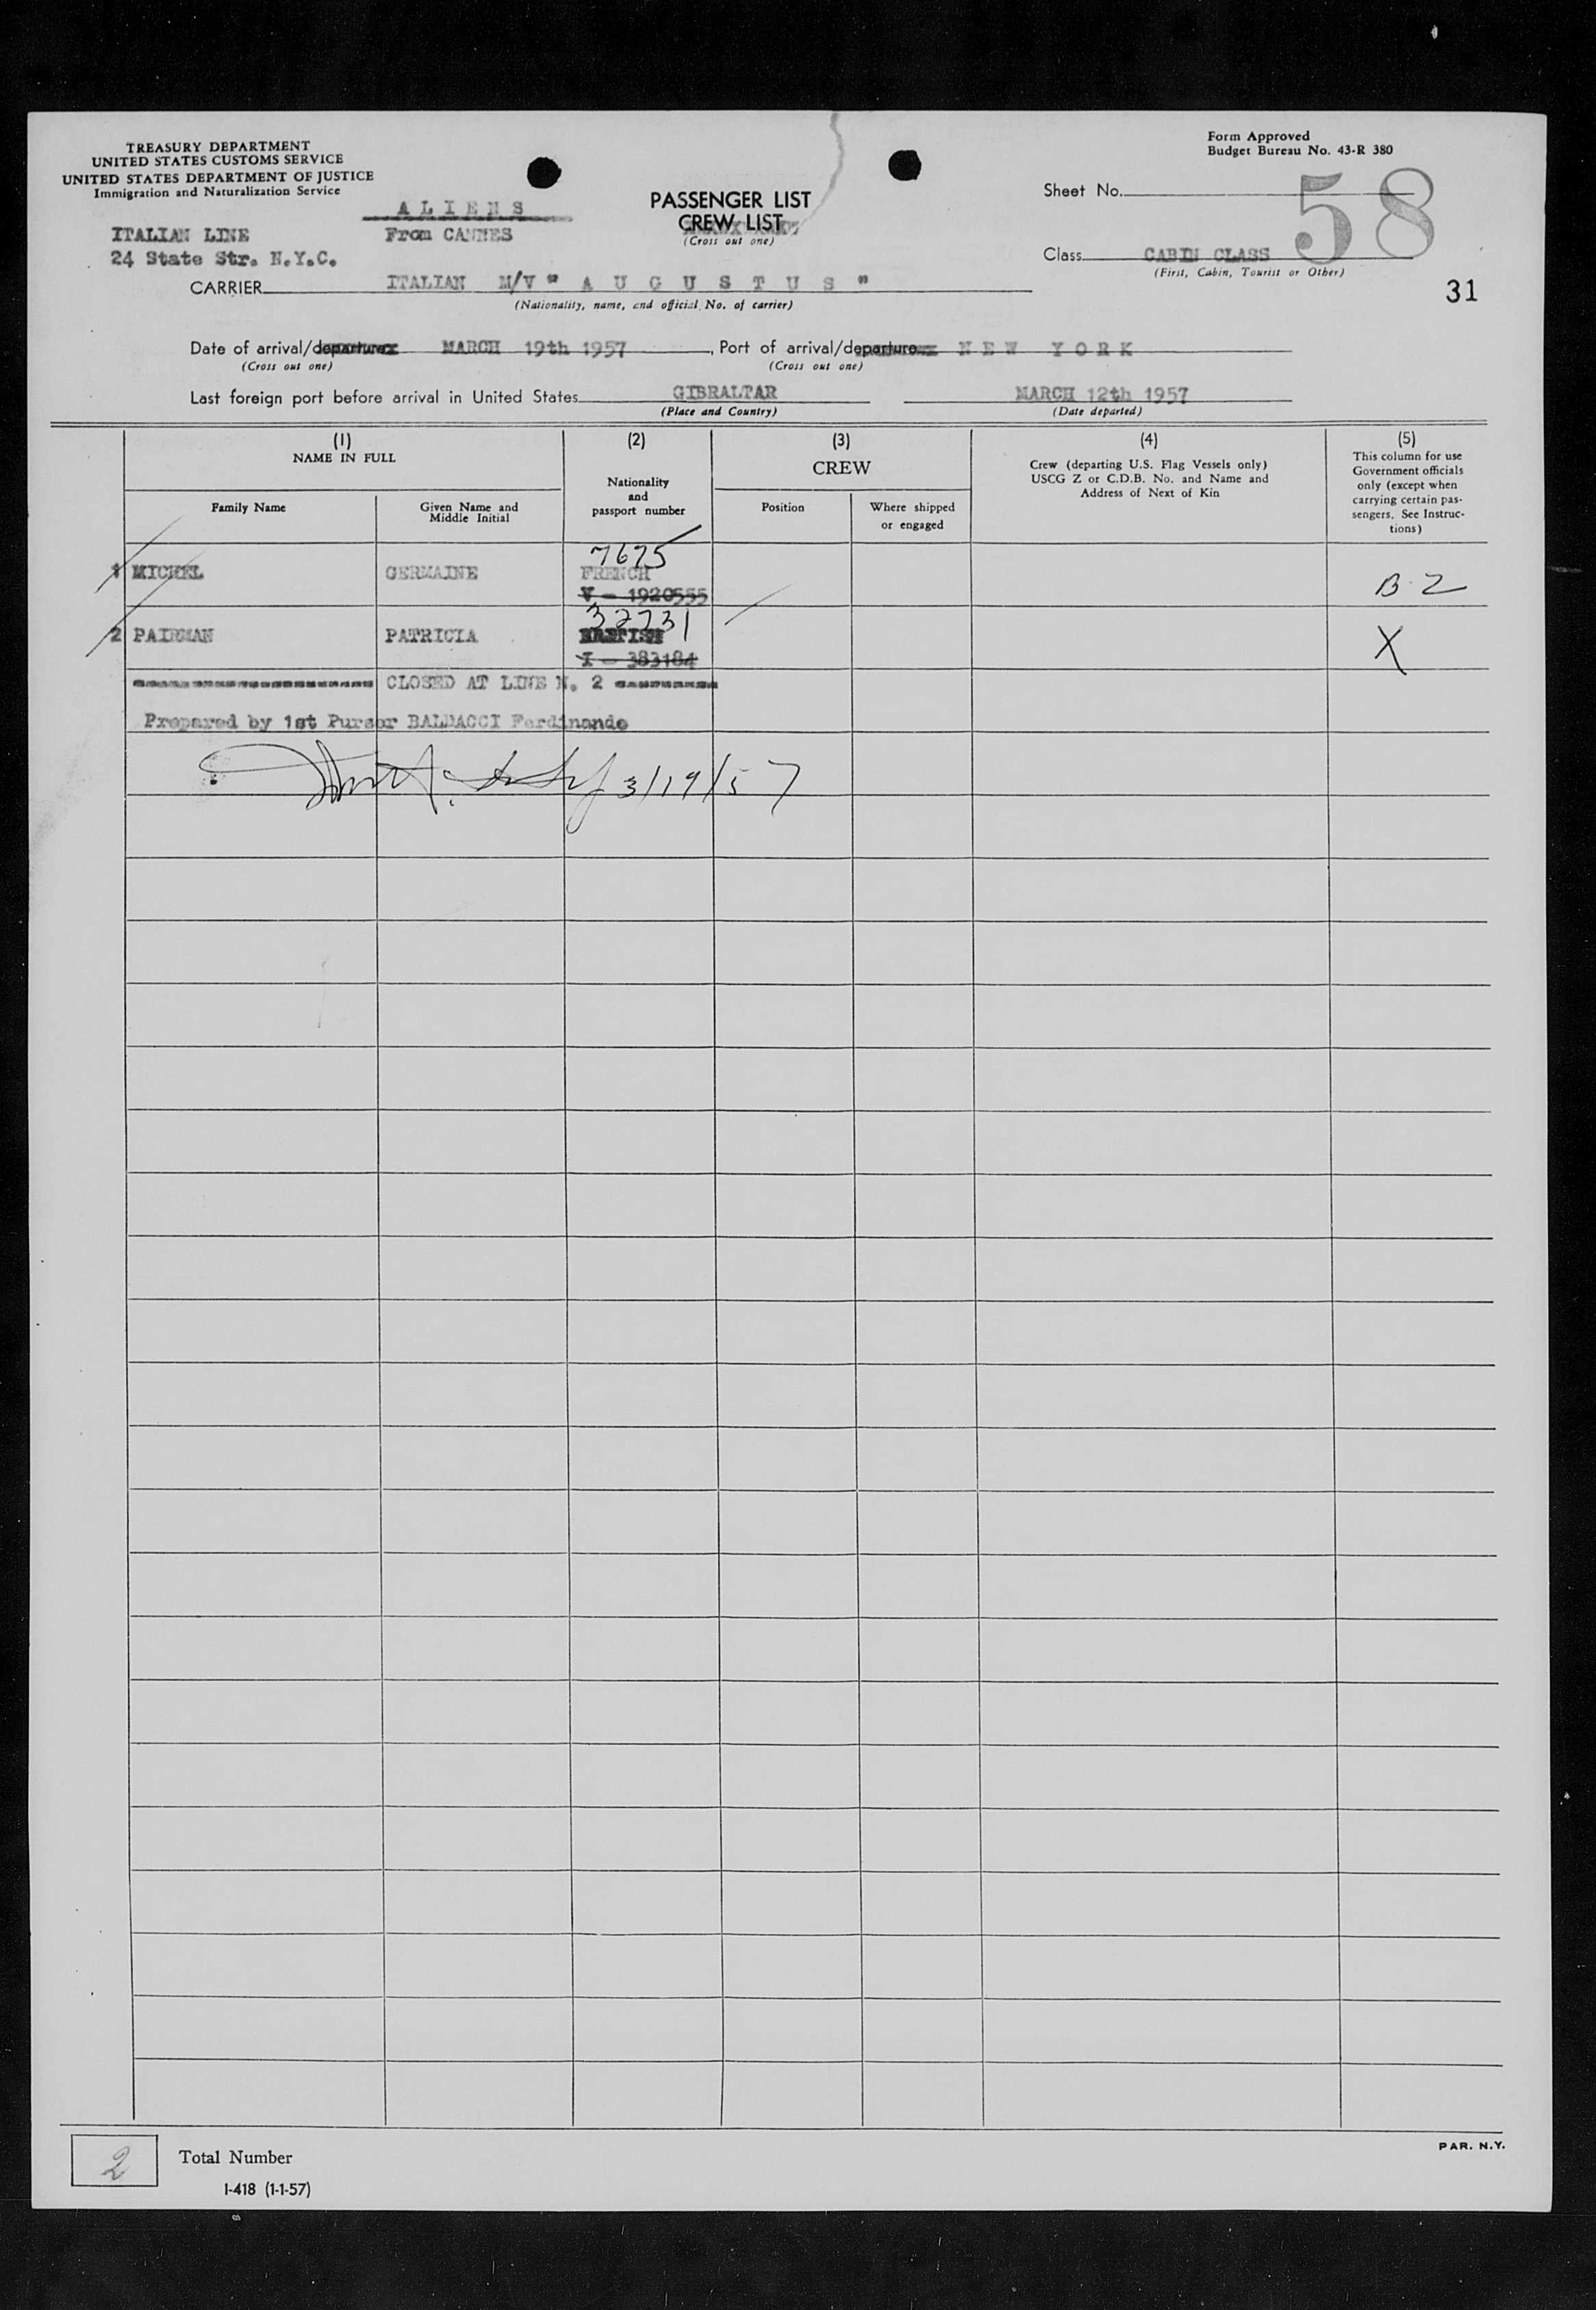 Form Approved
Budget Bureau No. 43-R 380
TREASURY DEPARTMENT
UNITED STATES CUSTOMS SERVICE
UNITED STATES DEPARTMENT OF JUSTICE
Immigration and Naturalization Service
ALIENS
PASSENGER LIST
CREW LIST
(Cross out one)
Sheet No. 58
ITALIAN LINE
From CANNES
24 State Str. N.Y.C.
Class CABIN CLASS
(First, Cabin, Tourist or Other)
31
CARRIER ITALIAN M/V " A U G U S T U S "
(Nationality, name, and official No. of carrier)
Date of arrival/departure MARCH 19th 1957, Port of arrival/departure NEW YORK
(Cross out one) (Cross out one)
Last foreign port before arrival in United States GIBRALTAR MARCH 12th 1957
(Place and Country) (Date departed)
(1) NAME IN FULL
Family Name
Given Name and Middle Initial
(2)
Nationality and passport number
(3)
CREW
Position
Where shipped or engaged
(4)
Crew (departing U.S. Flag Vessels only)
USCG Z or C.D.B. No. and Name and
Address of Next of Kin
(5)
This column for use
Government officials
only (except when
carrying certain pas-
sengers. See Instruc-
tions)
7675
1 MICHEL GERMAINE FRENCH
V - 1920555
B-2
32731
2 PAIRMAN PATRICIA BRITISH
I - 383184
X
CLOSED AT LINE N. 2
Prepared by 1st Purser BALDACCI Ferdinando
3/19/57
2
Total Number
I-418 (1-1-57)
PAR. N.Y.